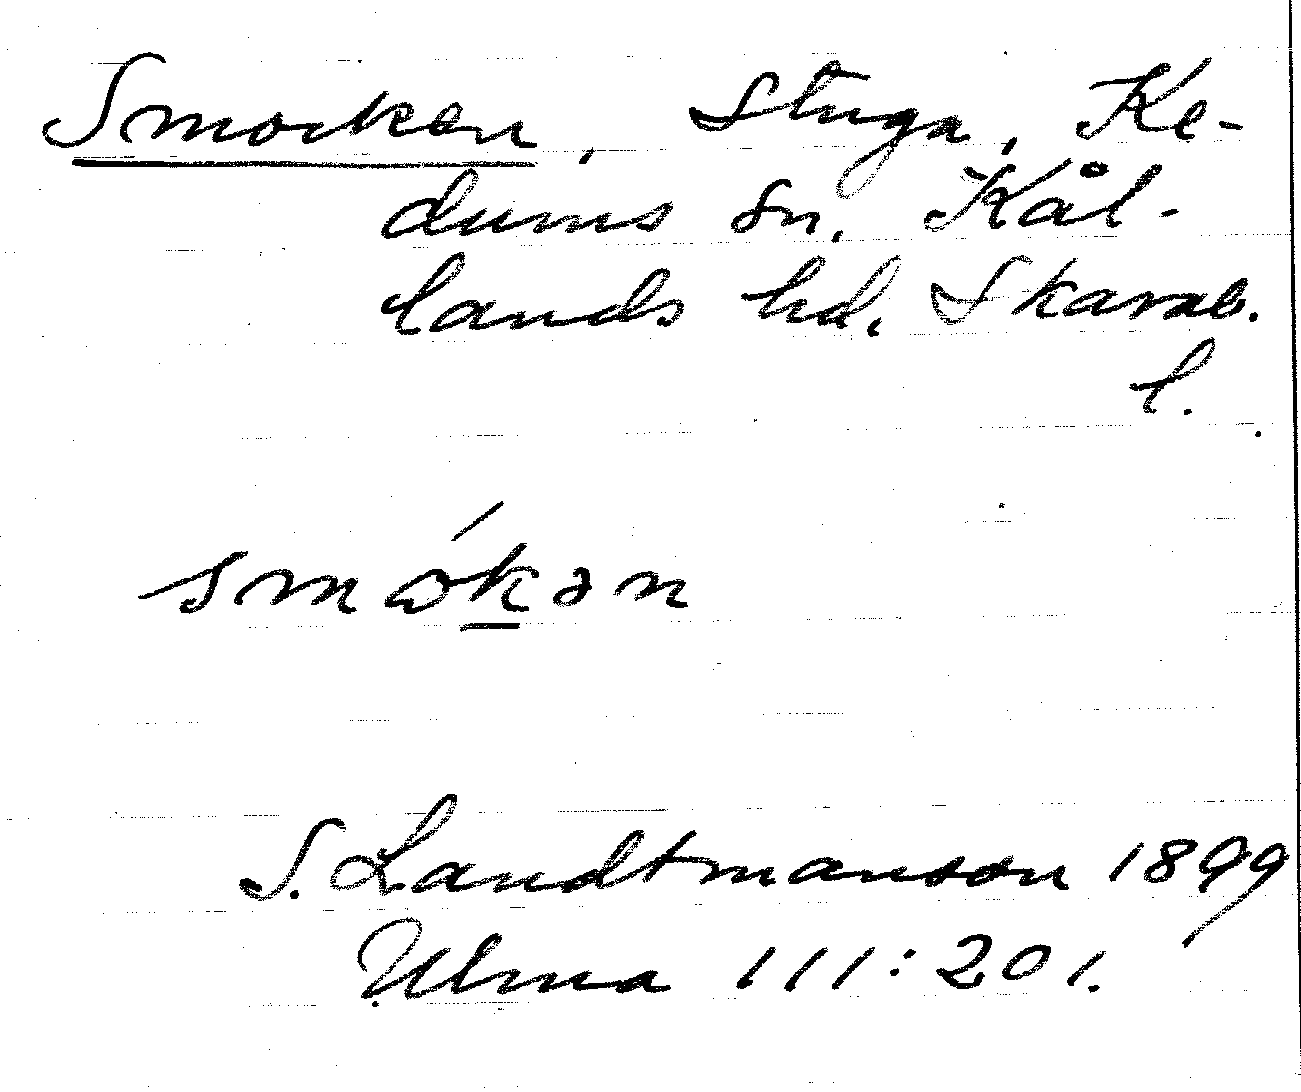 Smocken, Stuga, Ke-
dums sn. Kål-
lands hd. Skarab.
l.
smókən
S. Landtmanson 1899
Ulma 111:201.